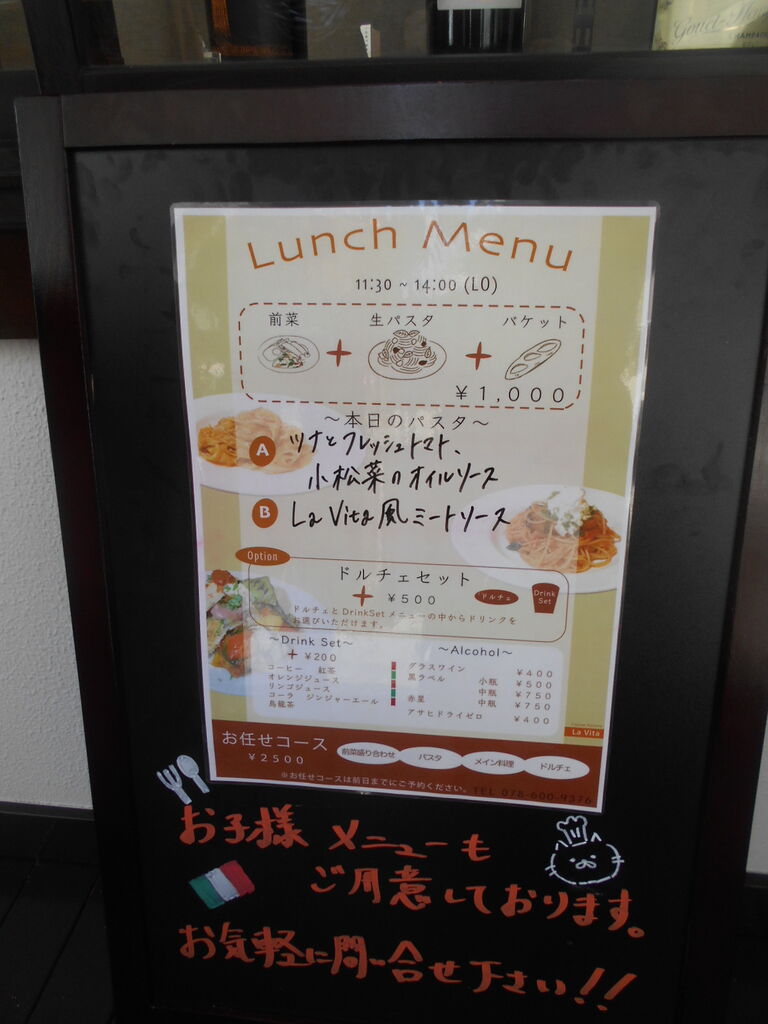 Lunch Menu
11:30 ~ 14:00 (LO)
前菜 + 生パスタ + バケット
¥1,000
～本日のパスタ～
A ツナとフレッシュトマト、
小松菜のオイルソース
B La Vita風ミートソース
Option
ドルチェセット
+ ¥500 ドルチェ Drink Set
ドルチェと DrinkSet メニューの中からドリンクを
お選びいただけます。
~Drink Set~
+ ¥200
コーヒー 紅茶
オレンジジュース
リンゴジュース
コーラ ジンジャーエール
烏龍茶
~Alcohol~
グラスワイン ¥400
黒ラベル 小瓶 ¥500
中瓶 ¥750
赤星 中瓶 ¥750
アサヒドライゼロ ¥400
La Vita
お任せコース
¥2500
前菜盛り合わせ パスタ メイン料理 ドルチェ
※お任せコースは前日までにご予約ください。 TEL 078-600-9376
お子様 メニューも
ご用意しております。
お気軽に問合せ下さい!!